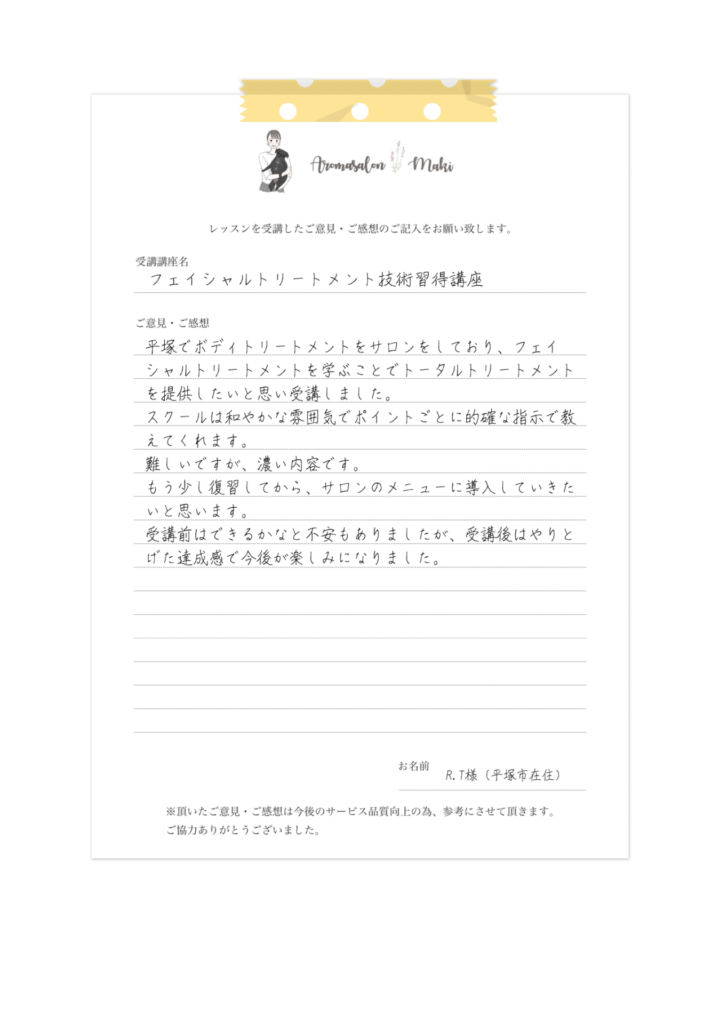 Aromasalon Maki
レッスンを受講したご意見・ご感想のご記入をお願い致します。
受講講座名
フェイシャルトリートメント技術習得講座
ご意見・ご感想
平塚でボディトリートメントをサロンをしており、フェイ
シャルトリートメントを学ぶことでトータルトリートメント
を提供したいと思い受講しました。
スクールは和やかな雰囲気でポイントごとに的確な指示で教
えてくれます。
難しいですが、濃い内容です。
もう少し復習してから、サロンのメニューに導入していきた
いと思います。
受講前はできるかなと不安もありましたが、受講後はやりと
げた達成感で今後が楽しみになりました。
お名前
R.T様（平塚市在住）
※頂いたご意見・ご感想は今後のサービス品質向上の為、参考にさせて頂きます。
ご協力ありがとうございました。